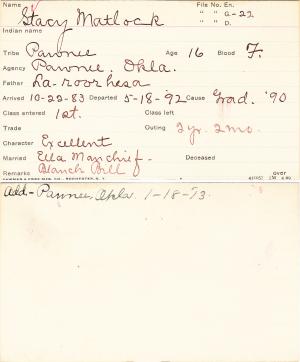 Name File No. En.
Stacy Matlock " " G-22
" " D.
Indian name
Tribe Pawnee Age 16 Blood F.
Agency Pawnee. Okla.
Father La-roor hesa
Arrived 10-22-83 Departed 5-18-92 Cause Grad. '90
Class entered 1st. Class left
Trade Outing 2 yr. 2 mo.
Character Excellent
Married Ella Man chief- Deceased
Remarks Blanch Bill
over
Add- Pawnee, Okla. 1-18-'13.